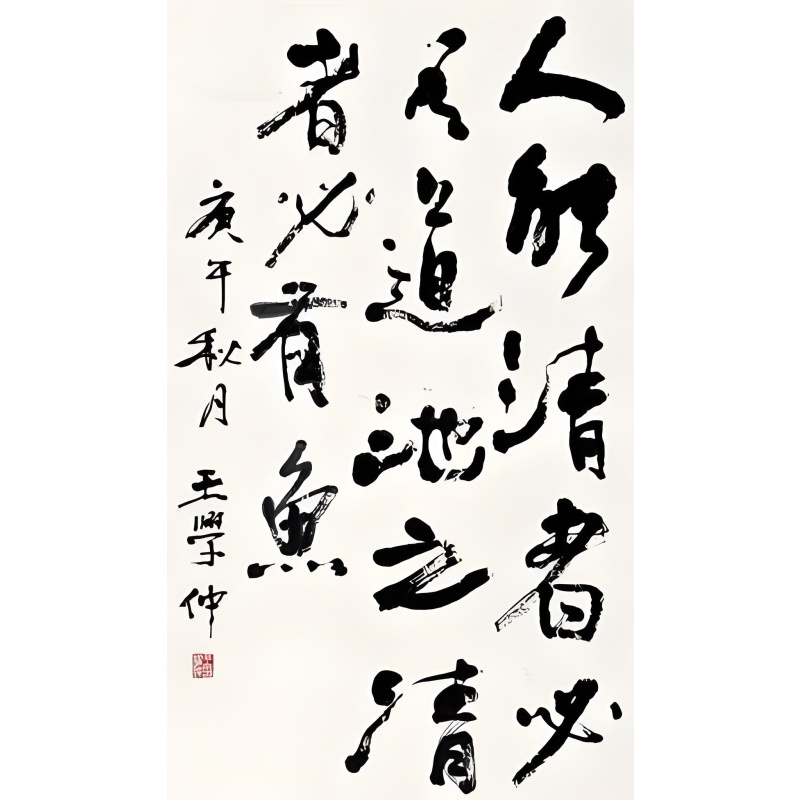 人能清者必
有公道池之清
者必有魚
庚午秋月 王學仲